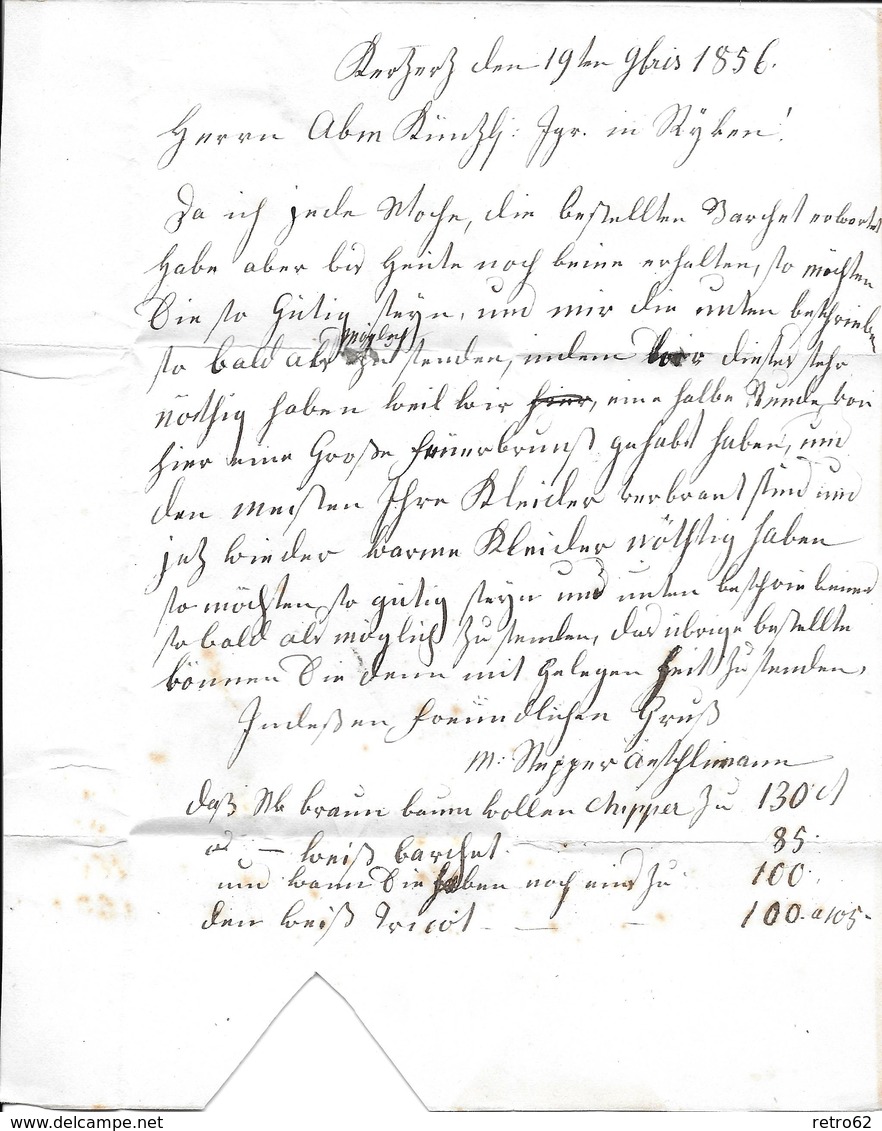 Kerzerz den 19ten 9bris 1856.
Herrn Abm Künzly: Jgr. in Ryken!
Da ich jede Woche, die bestellten Barchet erwartet
habe aber bis Heüte noch keine erhalten, so möchten
Sie so Gütig seyn, und mir die unten beschrieben
so bald als möglich zu senden, indem wir dieses sehr
nöthig haben weil wir hier, eine halbe Stunde, von
hier eine Große Feüerbrunst gehabt haben, und
den meisten Ihre Kleider verbrant sind und
jetz wieder warme Kleider nöthig haben
so möchten so gütig seyn und unten beschriebenes
so bald als möglich zu senden, das übrige bestellte
können Sie denn mit Gelegen heit zu senden,
Indeßen freündlichen Gruß
M: Aeschlimann
daß braun baum wollen zu 130 ct
do — weiß barchet 85.
und wann Sie haben noch eins zu 100.
den weiß Tricot — — 100. a 105.
www.delcampe.net
retro62